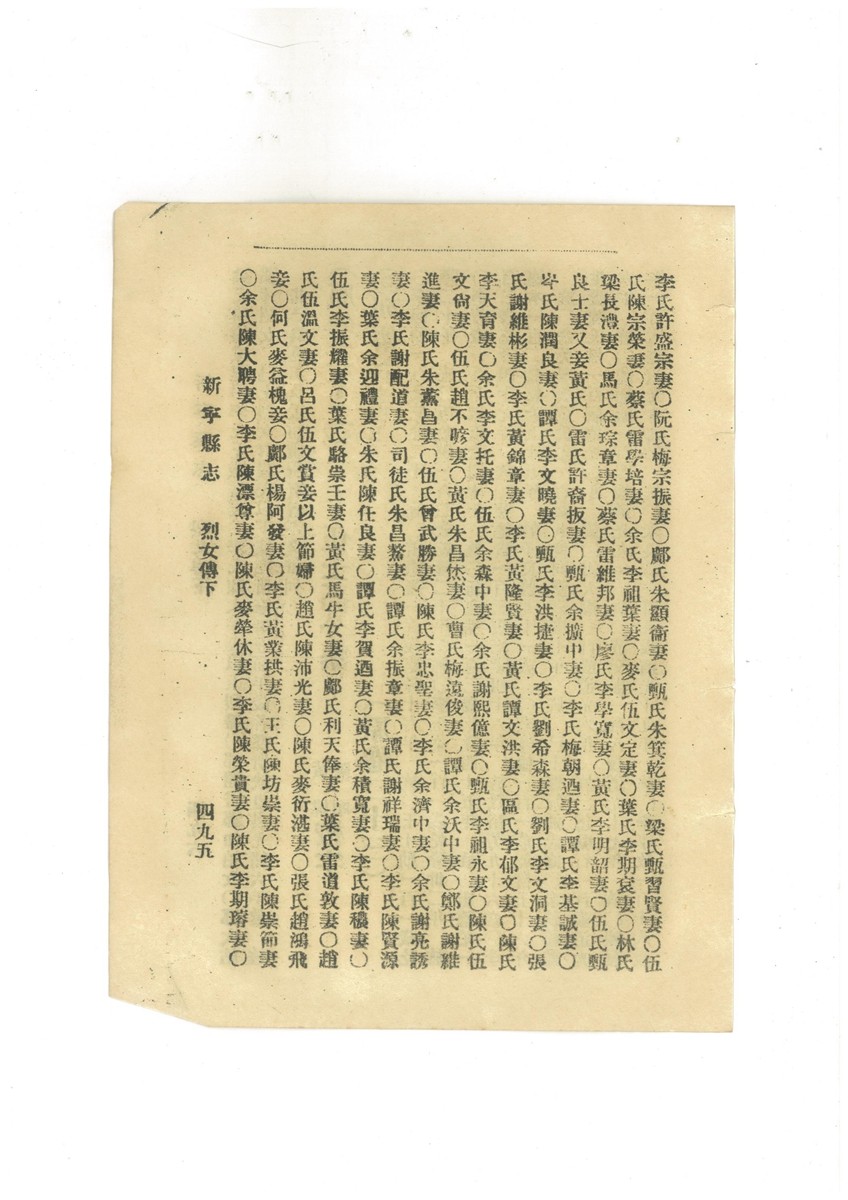 李氏許盛宗妻〇阮氏梅宗振妻〇鄺氏朱顯衞妻〇甄氏朱箕乾妻〇梁氏甄習賢妻〇伍
氏陳宗榮妻〇蔡氏雷學培妻〇余氏李祖葉妻〇麥氏伍文定妻〇葉氏李期袞妻〇林氏
梁長澧妻〇馬氏余琮章妻〇蔡氏雷維邦妻〇廖氏李學寬妻〇黃氏李明韶妻〇伍氏甄
良士妻又妾黃氏〇雷氏許裔扳妻〇甄氏余擴中妻〇李氏梅朝迺妻〇譚氏李基誠妻〇
岑氏陳潤良妻〇譚氏李文曉妻〇甄氏李洪捷妻〇李氏劉希森妻〇劉氏李文洞妻〇張
氏謝維彬妻〇李氏黃錦章妻〇李氏黃隆賢妻〇黃氏譚文洪妻〇區氏李郁文妻〇陳氏
李天育妻〇余氏李文托妻〇伍氏余森中妻〇余氏謝熙億妻〇甄氏李祖永妻〇陳氏伍
文尙妻〇伍氏趙不喭妻〇黃氏朱昌烋妻〇曹氏梅遠俊妻〇譚氏余沃中妻〇鄭氏謝維
進妻〇陳氏朱藄昌妻〇伍氏曾武勝妻〇陳氏李忠聖妻〇李氏余濟中妻〇余氏謝亮誘
妻〇李氏謝配道妻〇司徒氏朱昌鰲妻〇譚氏余振章妻〇譚氏謝祥瑞妻〇李氏陳賢源
妻〇葉氏余迎禮妻〇朱氏陳任良妻〇譚氏李賀迺妻〇黃氏余積寬妻〇李氏陳穠妻〇
伍氏李振耀妻〇葉氏駱祟壬妻〇黃氏馬牛女妻〇鄺氏利天俸妻〇葉氏雷道敦妻〇趙
氏伍溫文妻〇呂氏伍文賞妾以上節婦〇趙氏陳沛光妻〇陳氏麥衍湛妻〇張氏趙鴻飛
妾〇何氏麥益槐妾〇鄺氏楊阿發妻〇李氏黃業拱妻〇王氏陳坊崇妻〇李氏陳崇節妻
〇余氏陳大聘妻〇李氏陳漂尊妻〇陳氏麥犖休妻〇李氏陳榮貴妻〇陳氏李期瑢妻〇
新寧縣志 烈女傳下 四九五